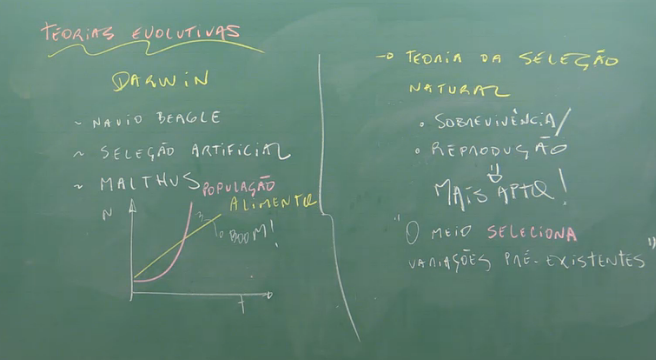 TEORIAS EVOLUTIVAS
DARWIN
~ NAVIO BEAGLE
~ SELEÇÃO ARTIFICIAL
~ MALTHUS
POPULAÇÃO
ALIMENTO
N
BOOM!
t
→ TEORIA DA SELEÇÃO
NATURAL
• SOBREVIVÊNCIA/
• REPRODUÇÃO
MAIS APTO!
"O MEIO SELECIONA
VARIAÇÕES PRÉ-EXISTENTES"